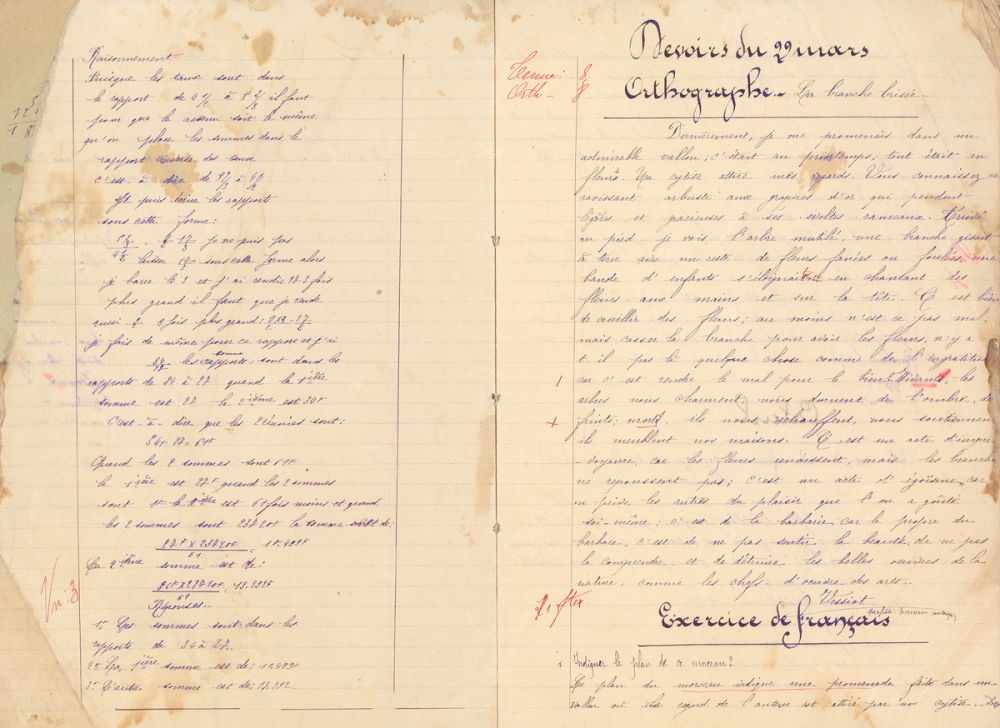 Raisonnement
Puisque les taux sont dans
le rapport de 4 1/2 à 5 2/3 il faut
pour que le revenu soit le même
qu'on place les sommes dans le
rapport inverse des taux
C'est-à-dire de 17/3 à 9/2
Je puis écrire les rapports
sous cette forme:
je ne puis pas
laisser sous cette forme alors
je barre le 3 et j'ai rendu 3 fois
plus grand il faut que je rende
aussi 9/2 3 fois plus grand:
je fais de même pour ce rapport et j'ai
les sommes sont dans les
rapports de 34 à 27 quand la 1ière
somme est 27 la 2ième est 34
C'est-à-dire que les 2 réunies sont:
34 + 27 = 61
Quand les 2 sommes sont 61
la 1ière est 27 quand les 2 sommes
sont 1 la 1ière est 61 fois moins et quand
les 2 sommes sont la somme est de:
61
La 2ième somme est de:
61
Réponses.
1º Les sommes sont dans les
rapports de 34 à 27.
2º La 1ière somme est de:
3º L'autre somme est de:
Vu: 3
Devoirs du 22 mars
Tenue: 8
Orth - 8
Orthographe. - La branche brisée.
Dernièrement, je me promenais dans un
admirable vallon, c'était au printemps; tout était en
fleurs. Un cytise attire mes regards. Vous connaissez ce
ravissant arbuste aux grappes d'or qui pendent
légères et gracieuses à ses sveltes rameaux. Arrivé
au pied je vois l'arbre mutilé, une branche gisait
à terre avec un reste de fleurs fanées ou foulées, une
bande d'enfants s'éloignaient en chantant des
fleurs aux mains et sur la tête. C'est bien
de cueillir des fleurs; au moins n'est-ce pas mal,
mais casser la branche pour avoir les fleurs, n'y a
t-il pas là quelque chose comme de l'ingratitude
car c'est rendre le mal pour le bien? les
arbres nous charment, nous donnent de l'ombre, des
fruits; morts, ils nous échauffent, nous soutiennent
ils meublent nos maisons. C'est un acte d'impré
-voyance, car les fleurs renaissent, mais les branches
ne repoussent pas; c'est un acte d'égoïsme car
on prive les autres du plaisir que l'on a goûté
soi-même; c'est de la barbarie car le propre du
barbare c'est de ne pas sentir la beauté de ne pas
la comprendre et de détruire les belles œuvres de la
nature comme les chefs-d'œuvre des arts.
Vessiot
Exercice de français
1 Indiquer le plan de ce morceau?
Le plan du morceau indique une promenade faite dans un
vallon où le regard de l'auteur est attiré par un cytise.